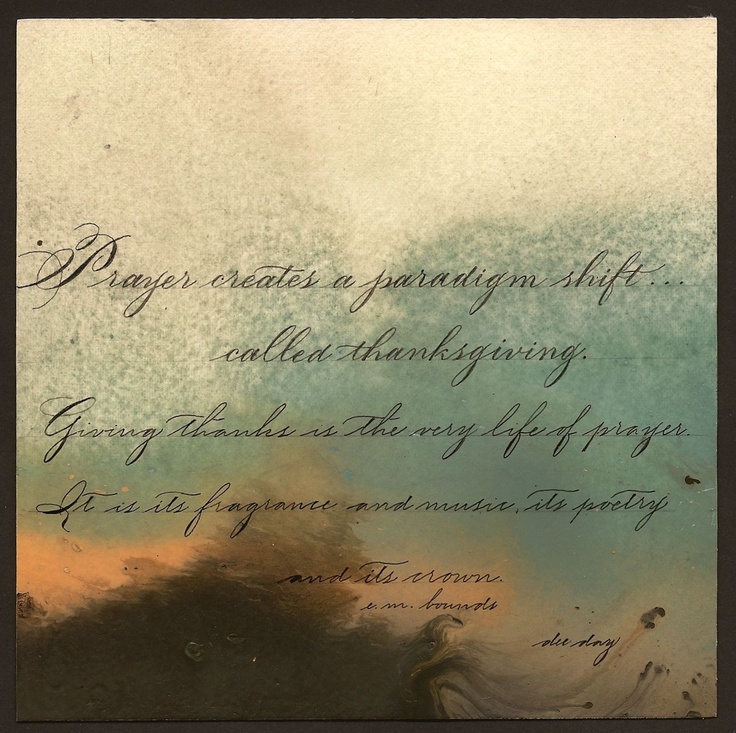 Prayer creates a paradigm shift...
called thanksgiving.
Giving thanks is the very life of prayer.
It is its fragrance and music, its poetry
and its crown.
e.m. bounds
dee day